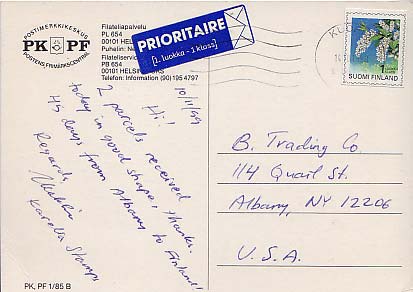 POSTIMERKKIKESKUS
PK PF
POSTENS FRIMÄRKSCENTRAL
Filateliapalvelu
PL 654
00101 HELSINKI
Puhelin:
Filateliservice
PB 654
00101 HELSINGFORS
Telefon: Information (90) 195 4797
PRIORITAIRE
[1. luokka - 1 klass]
1
SUOMI FINLAND
10/11/99
Hi!
2 parcels received
today in good shape, thanks.
4½ days from Albany to Finland!
Regards,
Karelia Stamps
B. Trading Co.
114 Quail St.
Albany, NY 12206
U.S.A.
PK, PF 1/85 B